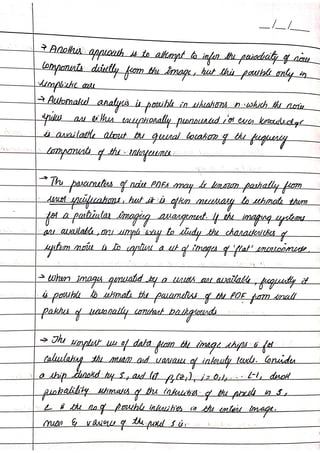 __/__/__
→ Another approach is to attempt to infer the periodicity of noise
components directly from the image, but this possible only in
simplistic case
→ Automated analysis is possible in situations in which the noise
spikes are either exceptionally pronounced or when knowledge
is available about the general location of the frequency
components of the interference.
→ The parameters of noise PDFs may be known partially from
sensor specifications, but it is often necessary to estimate them
for a particular imaging arrangement. If the imaging systems
are available, one simple way to study the characteristics of
system noise is to capture a set of images of "flat" environment.
→ When images generated by a sensor are available, frequently it
is possible to estimate the parameters of the PDF from small
patches of reasonably constant backgrounds
→ The simplest use of data from the image strips is for
calculating the mean and variance of intensity levels. Consider
a strip denoted by S, and let Ps(zi), i=0,1, ... L-1, denote
probability estimates of the intensities of the pixels in S,
L is the no. of possible intensities in the entire image.
mean & variance of the pixel S is.